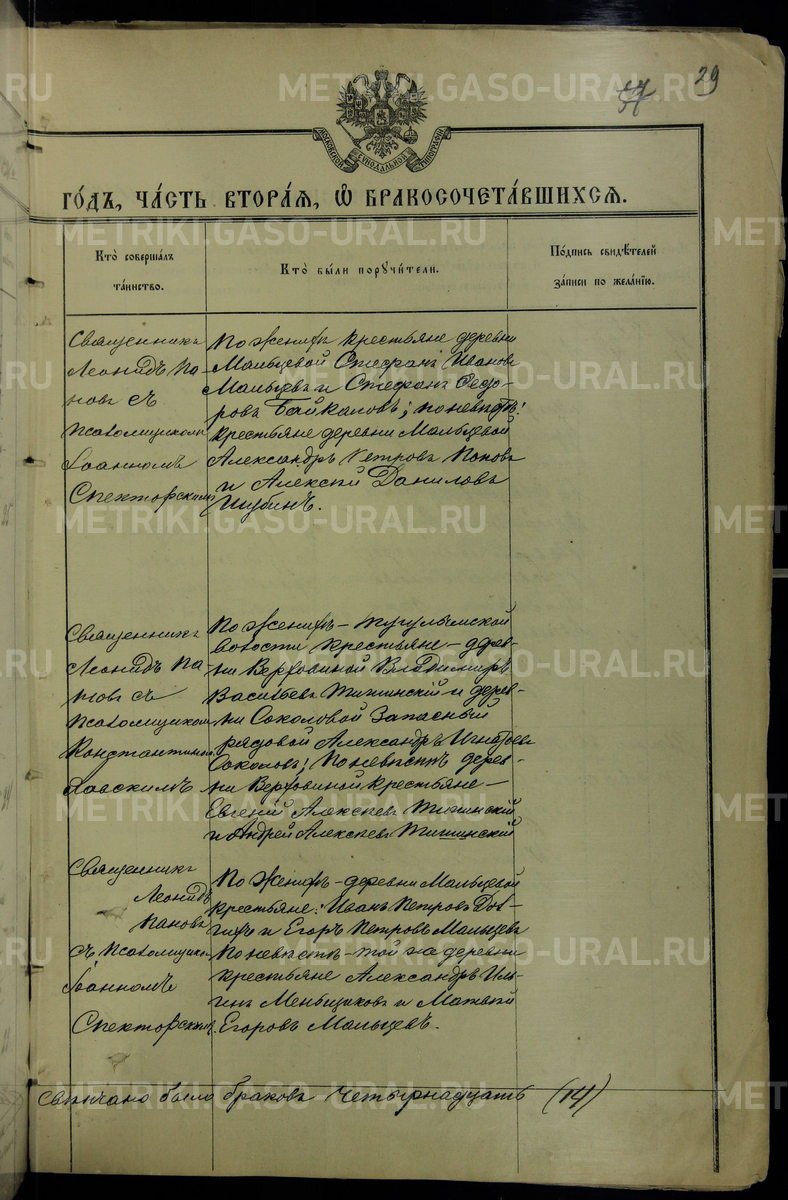 29
МОСКОВСКОЙ СѴНОДАЛЬНОЙ ТИПОГРАФІИ
ГО́ДЪ, ЧА́СТЬ ВТОРА́Я, Ѽ БРАКОСОЧЕТА́ВШИХСЯ.
Кто̀ соверша́лъ
та́инство.
Кто̀ бы́ли порꙋчи́тели.
По́дпись свидѣ́телей
за́писи по жела́нїю.
Священникъ
Леонидъ Па-
новъ съ
псаломщикомъ
Іоанномъ
Спекторскимъ
По женихѣ крестьяне деревни
Мальцевой Стефанъ Ивановъ
Мальцевъ и Стефанъ Ѳедо-
ровъ Байкаловъ; по невѣстѣ:
крестьяне деревни Мальцевой
Александръ Петровъ Поповъ
и Алексѣй Даниловъ
Шубинъ.
Священникъ
Леонидъ Па
новъ съ
псаломщикомъ
Константиномъ
По женихѣ – Тугулымской
волости крестьяне – дерев-
ни Верховиной Владимиръ
Васильевъ Тишинскій и дерев-
ни Соколовой запасный
рядовой Александръ Игнатьевъ
Соколовъ; по невѣстѣ дерев-
ни Верховиной крестьяне –
Евгеній Алексѣевъ Тишинскій
и Андрей Алексѣевъ Тишинскій
Священникъ
Леонидъ
Пановъ
съ псаломщикомъ
Іоанномъ
Спекторскимъ.
По женихѣ – деревни Мальцевой
крестьяне: Иванъ Петровъ Дол-
гихъ и Егоръ Петровъ Мальцевъ
По невѣстѣ – той же деревни
крестьяне Александръ Иль-
инъ Меньщиковъ и Матвѣй
Егоровъ Мальцевъ.
Свѣнчано было браковъ четырнадцать (14)
METRIKI.GASO-URAL.RU